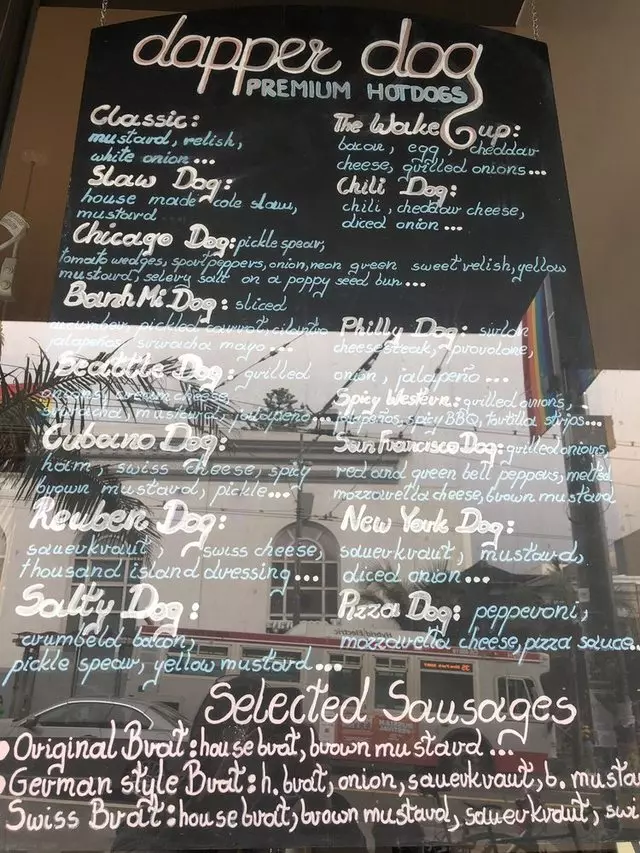 dapper dog
PREMIUM HOTDOGS
Classic:
mustard, relish,
white onion...
Slaw Dog:
house made cole slaw,
mustard
The Wake up:
bacon, egg, cheddar
cheese, grilled onions...
Chili Dog:
chili, cheddar cheese,
diced onion...
Chicago Dog: pickle spear,
tomato wedges, sport peppers, onion, neon green sweet relish, yellow
mustard, selery salt on a poppy seed bun...
Banh Mi Dog: sliced
cucumber, pickled carrot, cilantro
jalapeños, sriracha mayo...
Seattle Dog: grilled
onions, cream cheese,
sriracha, mustard, jalapeño...
Cubano Dog:
ham, swiss cheese, spicy
brown mustard, pickle...
Reuben Dog:
sauerkraut, swiss cheese,
thousand island dressing...
Salty Dog:
crumbeld bacon,
pickle spear, yellow mustard...
Philly Dog: sirloin
cheesesteak, provolone,
onion, jalapeño...
Spicy Western: grilled onions,
jalapeños, spicy BBQ, tortilla strips...
San Francisco Dog: grilled onions,
red and green bell peppers, melted
mozzarella cheese, brown mustard
New York Dog:
sauerkraut, mustard,
diced onion...
Pizza Dog: pepperoni,
mozzarella cheese, pizza sauce..
Selected Sausages
Original Brat: house brat, brown mustard...
German style Brat: h. brat, onion, sauerkraut, b. musta
Swiss Brat: house brat, brown mustard, sauerkraut, swi